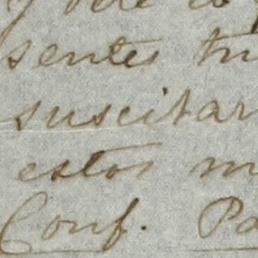 sentes tu
suscitar
estos m
Conf. Pa